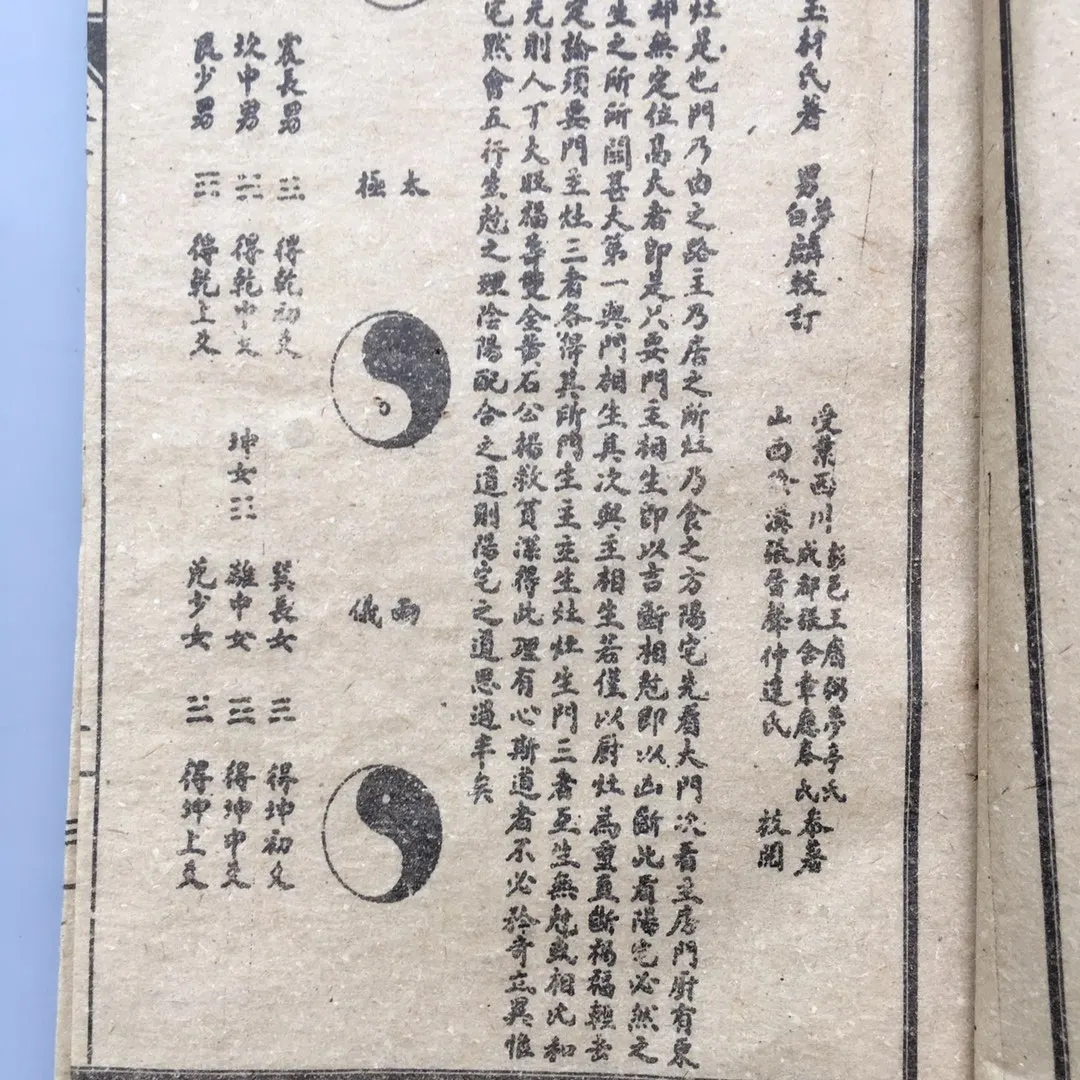 玉材氏著 男夢白麟較訂
受業西川彭邑王賡弼夢亭氏
成都張含章應泰氏參著
山西溝張晉聲仲達氏 校閱
灶是也門乃由之路主乃居之所灶乃食之方陽宅先看大門次看主房門厨有東
却無定位高大者即是只要門主相生即以吉斷相尅即以凶斷此看陽宅必然之
生之所所關甚大第一與門相生其次與主相生若僅以厨灶為重直斷禍福輕去
定論須要門主灶三者各得其所門生主主生灶灶生門三者互生無尅或相比和
元則人丁大旺福壽雙全黃石公楊救貧深得此理有心斯道者不必矜奇立異惟
宅熟會五行生尅之理陰陽配合之道則陽宅之道思過半矣
太極
兩儀
震長男 ☳ 得乾初爻
坎中男 ☵ 得乾中爻
艮少男 ☶ 得乾上爻
坤女 ☷
巽長女 ☴ 得坤初爻
離中女 ☲ 得坤中爻
兌少女 ☱ 得坤上爻